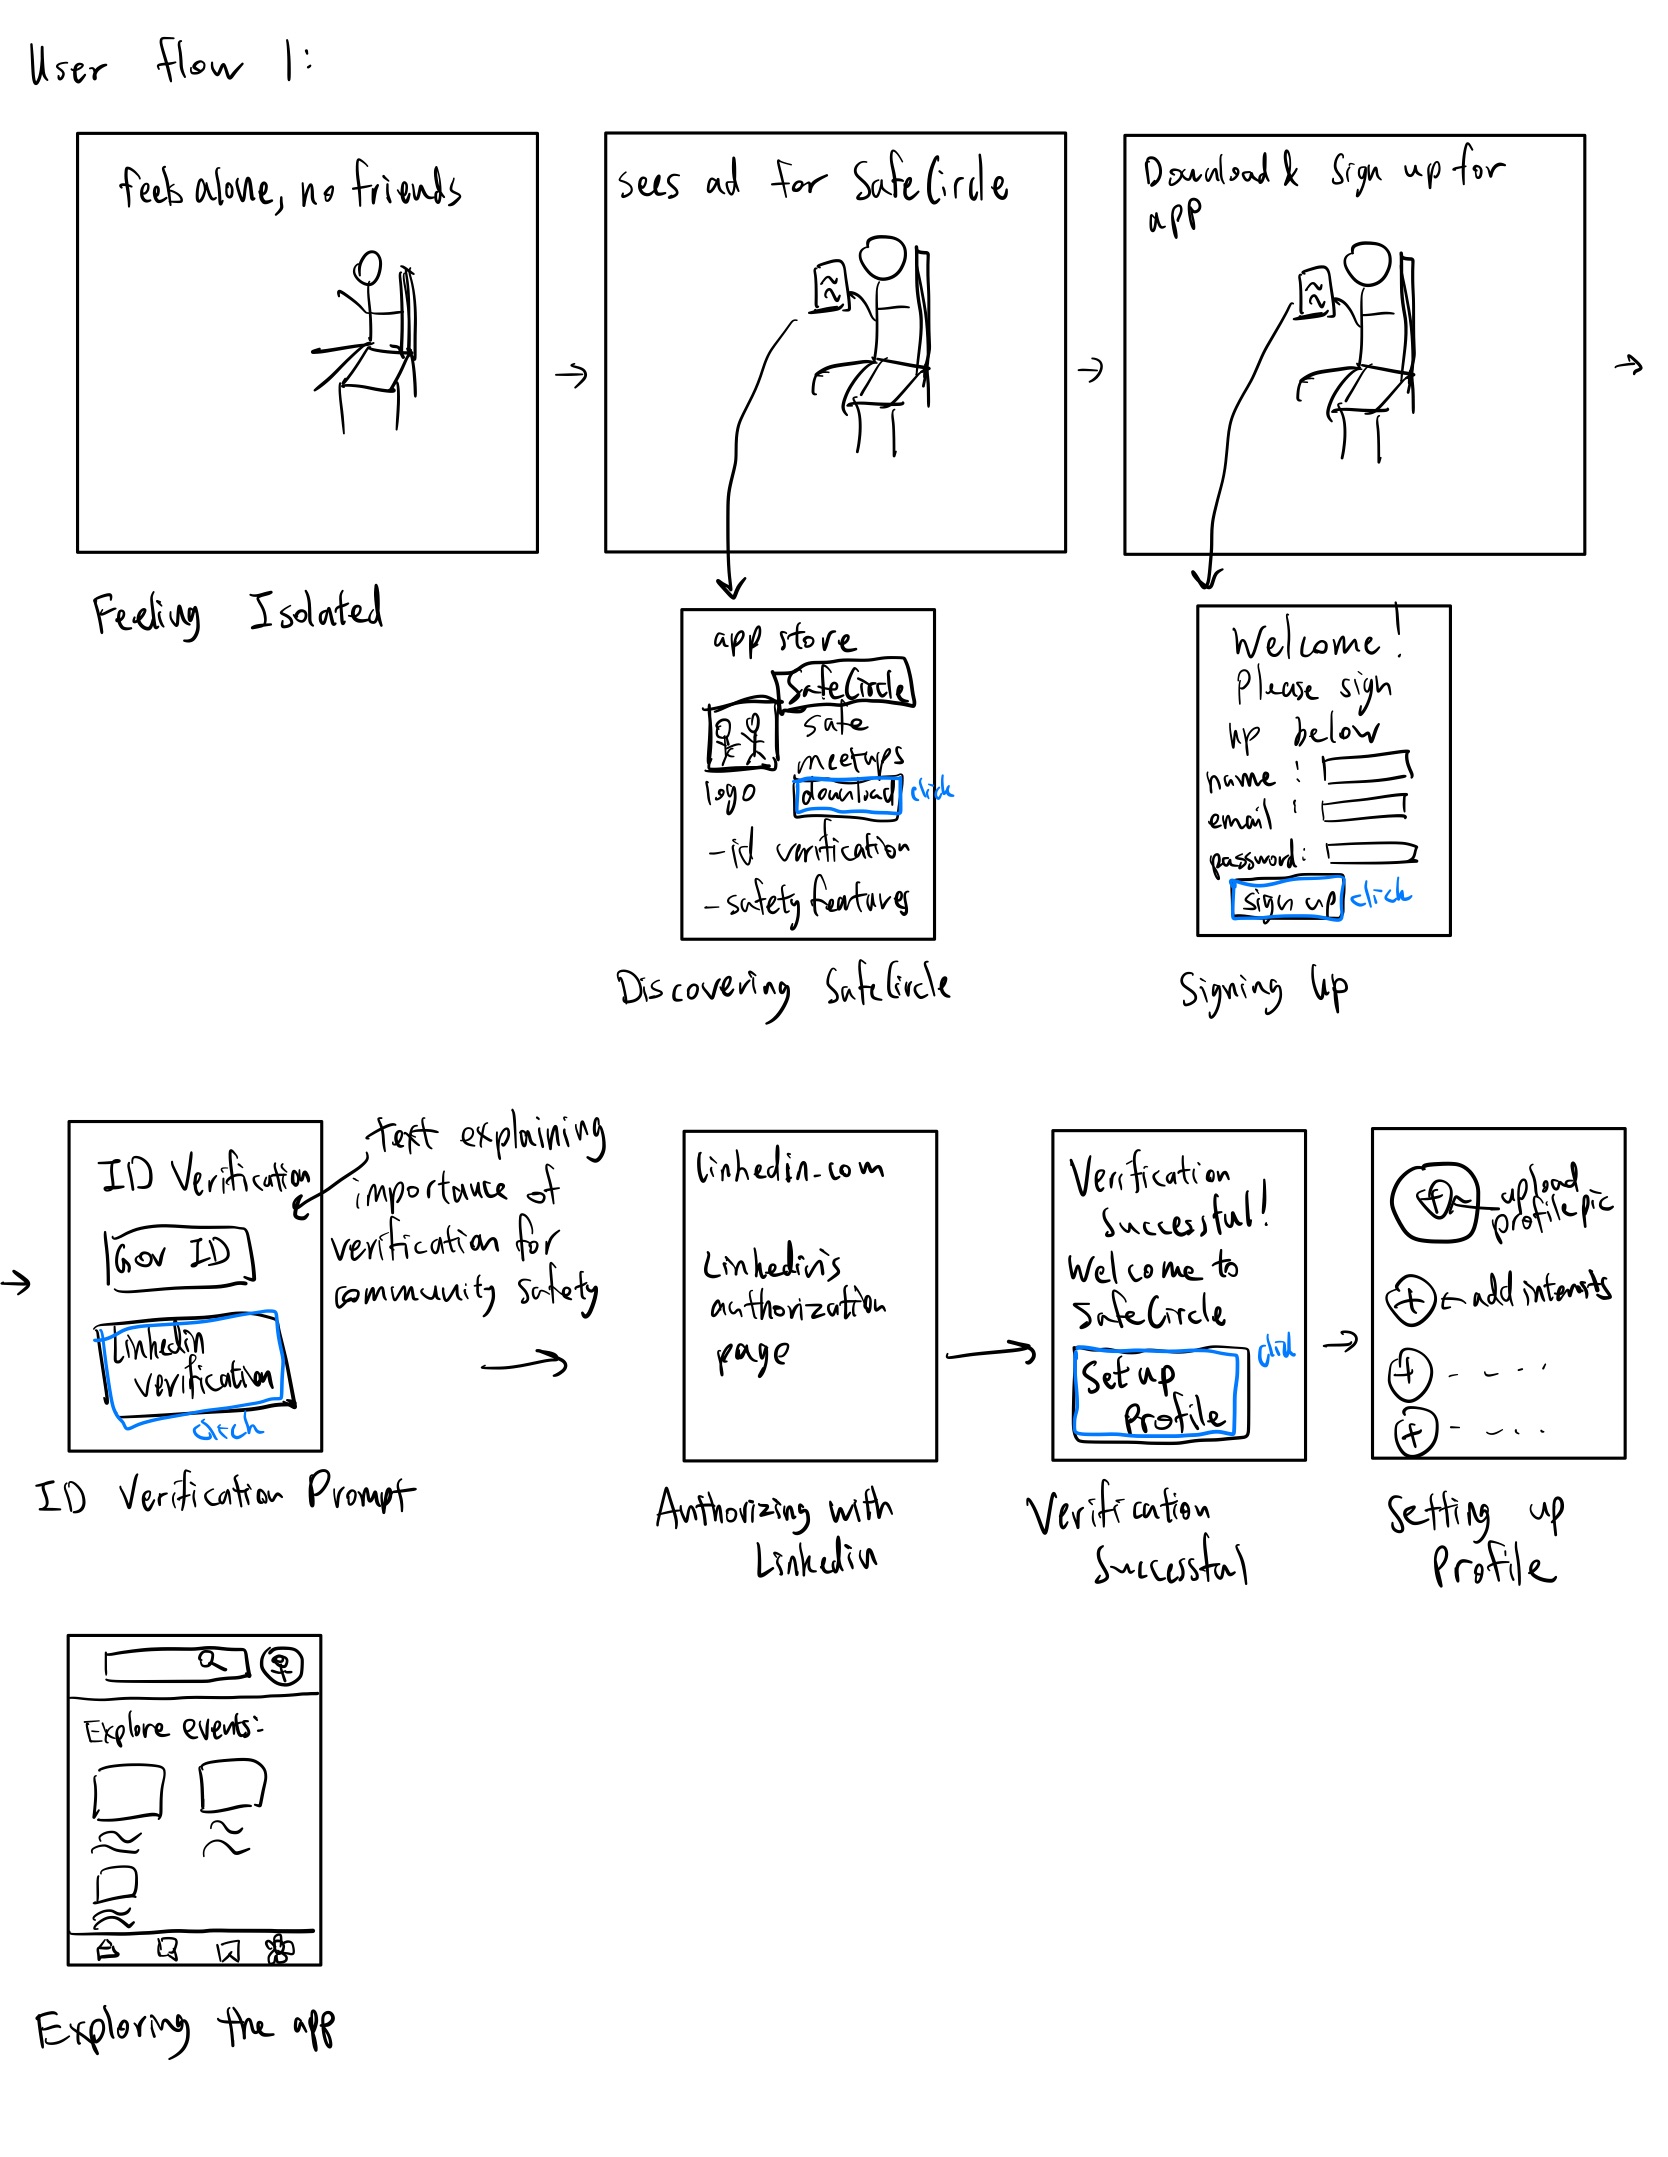 User flow 1:
feels alone, no friends
sees ad for SafeCircle
Download & Sign up for
app
Feeling Isolated
app store
SafeCircle
safe
meetups
logo
download
click
-id verification
-safety features
Discovering SafeCircle
Welcome!
Please sign
up below
name :
email :
password:
sign up
click
Signing Up
ID Verification
Gov ID
Linkedin
verification
click
text explaining
importance of
verification for
community safety
ID Verification Prompt
linkedin.com
Linkedin's
authorization
page
Authorizing with
Linkedin
Verification
Successful!
Welcome to
SafeCircle
Set up
Profile
click
Verification
Successful
upload
profile pic
add interests
Setting up
Profile
Explore events:
Exploring the app